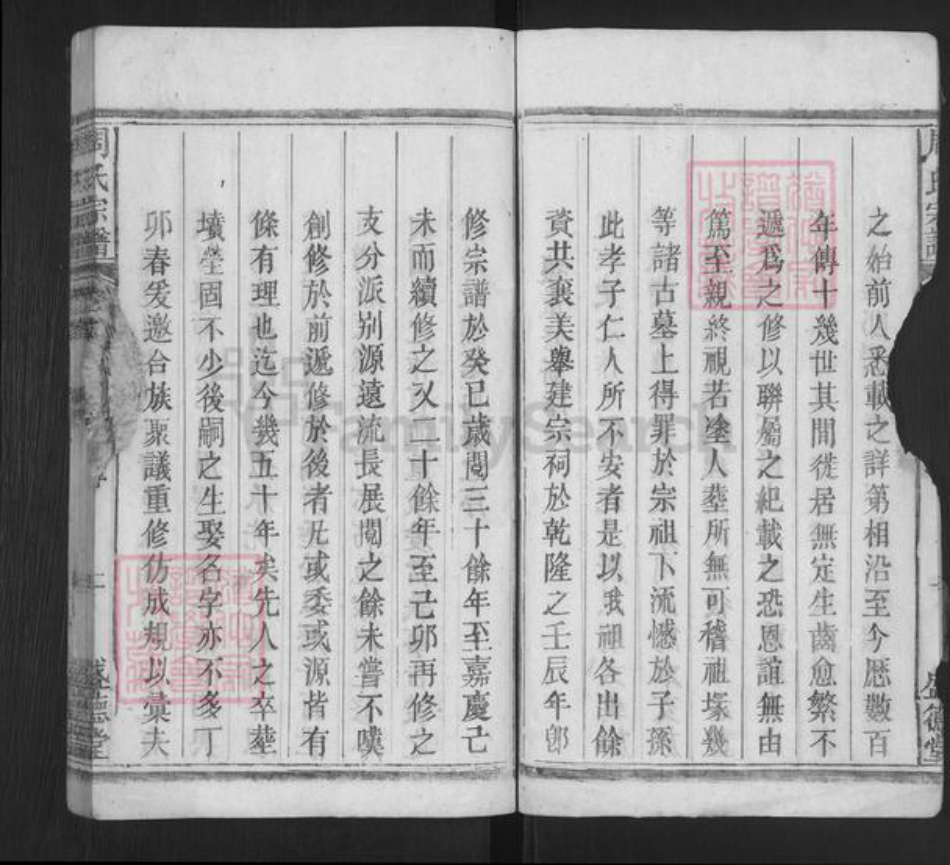 之始前人悉載之詳第相沿至今歷數百
年傳十幾世其間徙居無定生齒愈繁不
遞爲之修以聯屬之紀載之恐恩誼無由
篤至親終視若塗人葬所無可稽祖塚幾
等諸古墓上得罪於宗祖下流憾於子孫
此孝子仁人所不安者是以我祖各出餘
資共襄美舉建宗祠於乾隆之壬辰年卽
修宗譜於癸巳歲閱三十餘年至嘉慶己
未而續修之又二十餘年至己卯再修之
支分派别源遠流長展閱之餘未嘗不嘆
創修於前遞修於後者凡或委或源皆有
條有理也迄今幾五十年矣先人之卒葬
墳塋固不少後嗣之生娶名字亦不多丁
卯春爰邀合族聚議重修仿成規以彙夫
周氏宗譜
二
盛德堂
周氏宗譜
盛德堂
FamilySearch